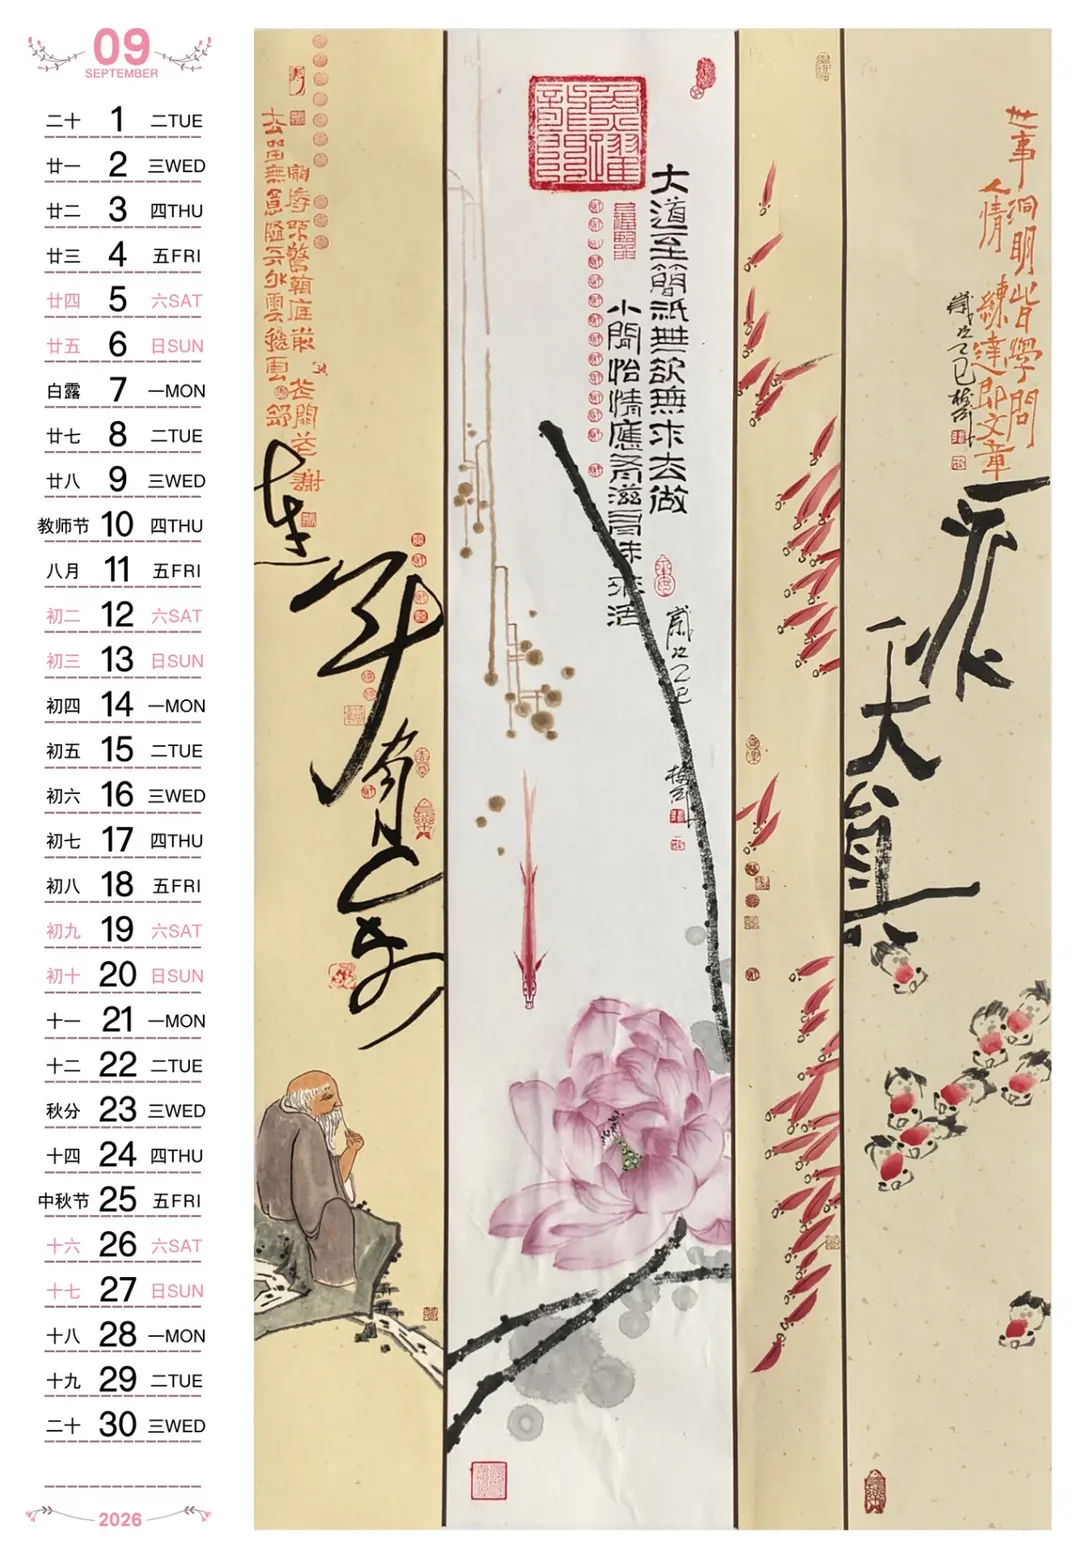 09
SEPTEMBER
二十 1 二TUE
廿一 2 三WED
廿二 3 四THU
廿三 4 五FRI
廿四 5 六SAT
廿五 6 日SUN
白露 7 一MON
廿七 8 二TUE
廿八 9 三WED
教师节 10 四THU
八月 11 五FRI
初二 12 六SAT
初三 13 日SUN
初四 14 一MON
初五 15 二TUE
初六 16 三WED
初七 17 四THU
初八 18 五FRI
初九 19 六SAT
初十 20 日SUN
十一 21 一MON
十二 22 二TUE
秋分 23 三WED
十四 24 四THU
中秋节 25 五FRI
十六 26 六SAT
十七 27 日SUN
十八 28 一MON
十九 29 二TUE
二十 30 三WED
2026
世事洞明皆學問
人情練達即文章
歲次乙巳
一派天真
大道至簡祇無欲無求去做
小閒怡情應
歲次乙巳
花開花謝
去留無意隨天外雲